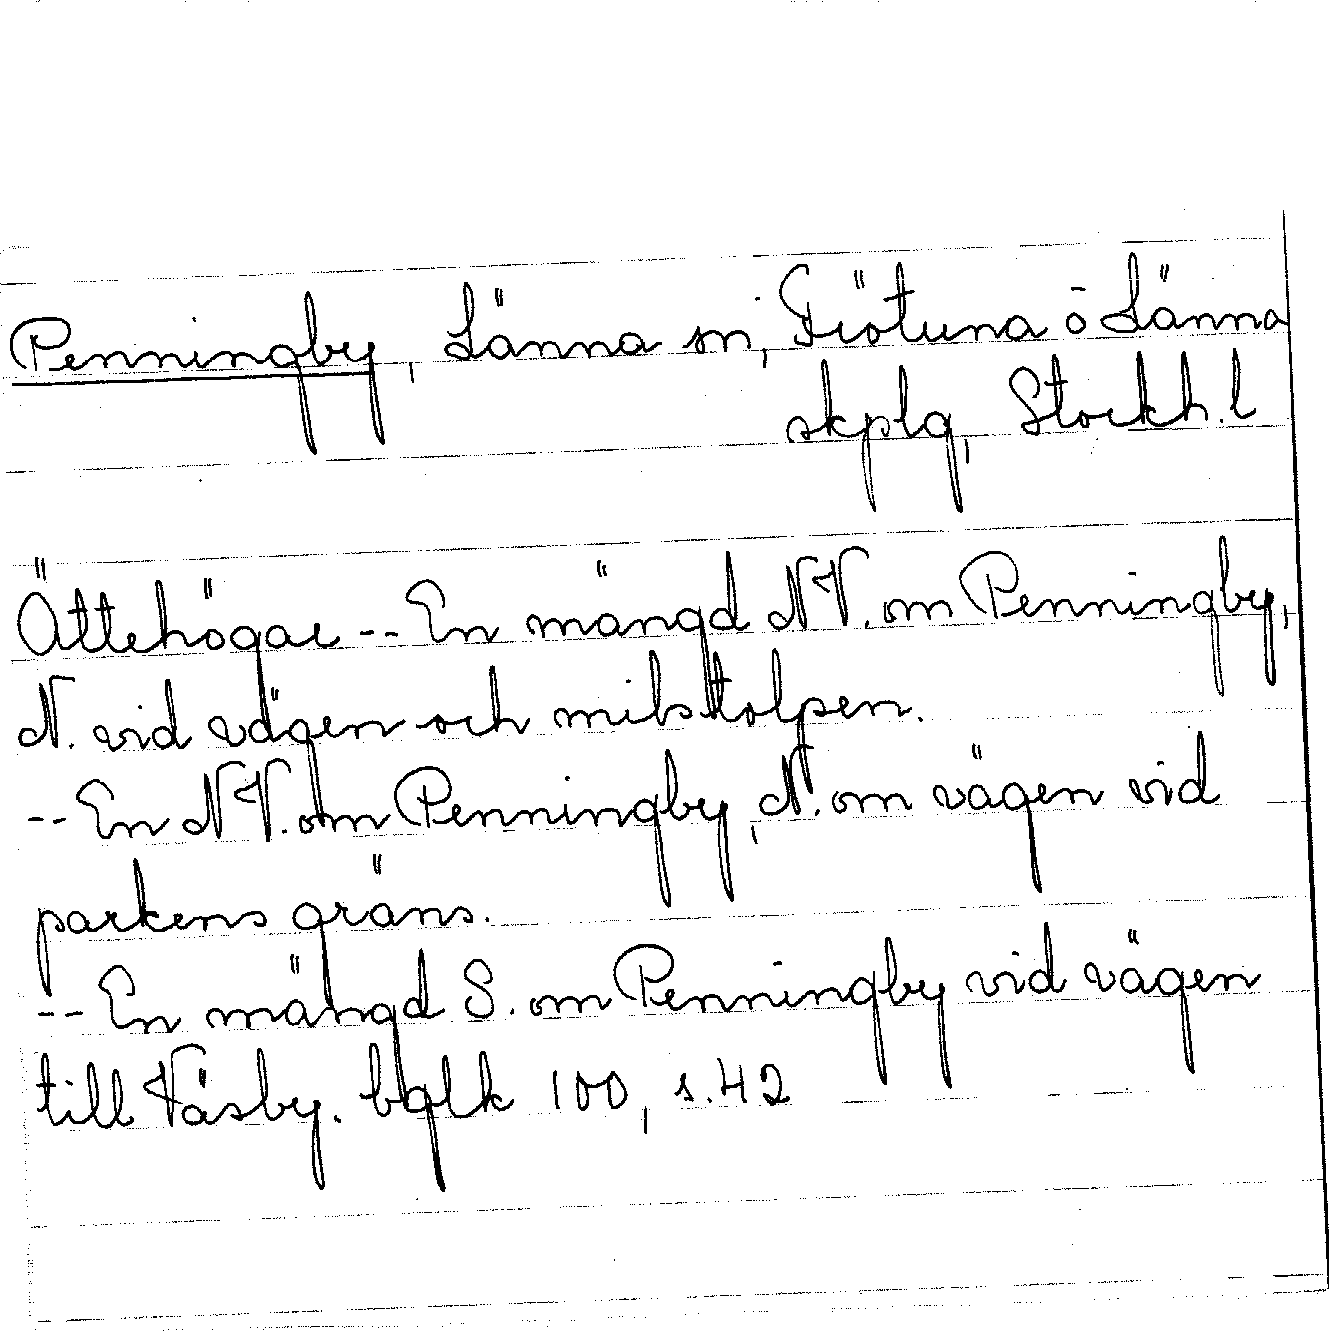 Penningby, Länna sn, Frötuna o Länna
skplg, Stockh. l
Ättehögar -- En mängd NV. om Penningby,
N. vid vägen och milstolpen.
-- En NV. om Penningby, N. om vägen vid
parkens gräns.
-- En mängd S. om Penningby vid vägen
till Väsby. bglk 100, s. 42